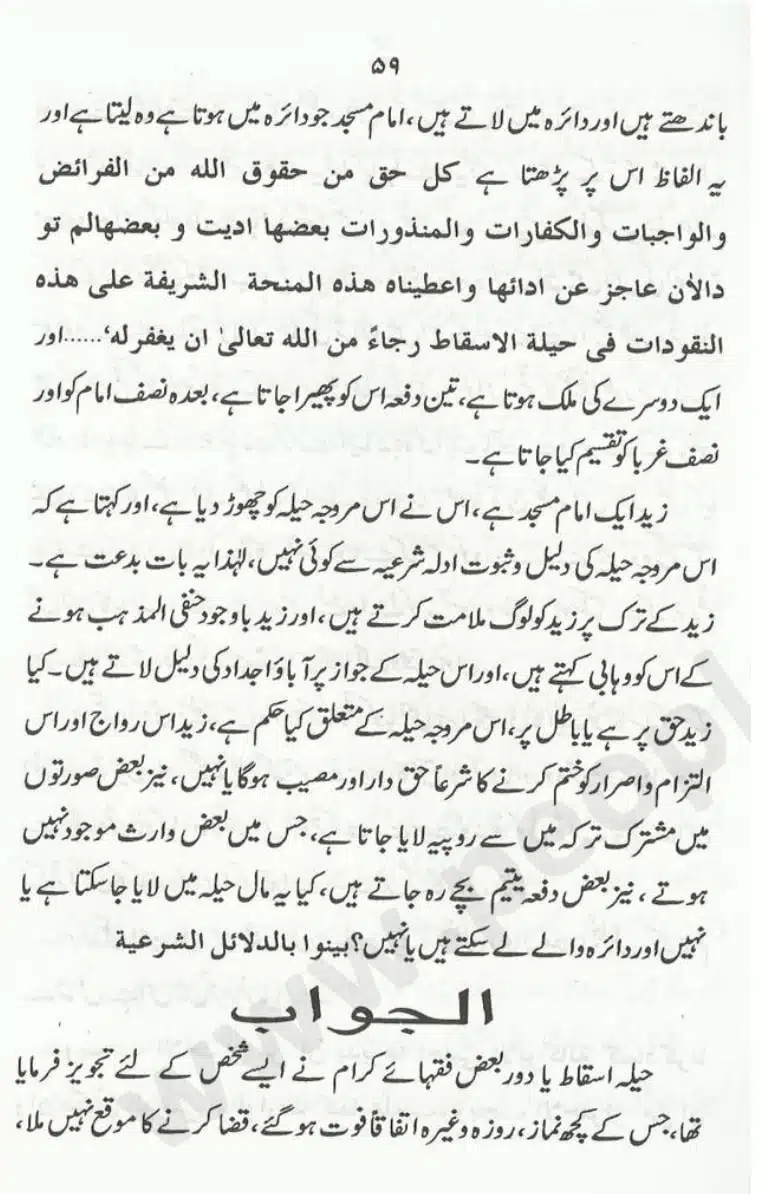 ۵۹
باندھتے ہیں اور دائرہ میں لاتے ہیں، امام مسجد جو دائرہ میں ہوتا ہے وہ لیتا ہے اور
یہ الفاظ اس پر پڑھتا ہے کل حق من حقوق الله من الفرائض
والواجبات والکفارات والمنذورات بعضها ادیت و بعضهالم تو
دالأن عاجز عن ادائها واعطیناه هذه المنحة الشریفة علی هذه
النقودات فی حیلة الاسقاط رجاءً من الله تعالیٰ ان یغفرله‘......اور
ایک دوسرے کی ملک ہوتا ہے، تین دفعہ اس کو پھیرا جاتا ہے، بعدہ نصف امام کو اور
نصف غربا کو تقسیم کیا جاتا ہے۔
زید ایک امام مسجد ہے، اس نے اس مروجہ حیلہ کو چھوڑ دیا ہے، اور کہتا ہے کہ
اس مروجہ حیلہ کی دلیل و ثبوت ادلہ شرعیہ سے کوئی نہیں، لہٰذا یہ بات بدعت ہے۔
زید کے ترک پر زید کو لوگ ملامت کرتے ہیں، اور زید باوجود حنفی المذہب ہونے
کے اس کو وہابی کہتے ہیں، اور اس حیلہ کے جواز پر آباؤ اجداد کی دلیل لاتے ہیں۔ کیا
زید حق پر ہے یا باطل پر، اس مروجہ حیلہ کے متعلق کیا حکم ہے، زید اس رواج اور اس
التزام و اصرار کو ختم کرنے کا شرعاً حق دار اور مصیب ہوگا یا نہیں، نیز بعض صورتوں
میں مشترک ترکہ میں سے روپیہ لایا جاتا ہے، جس میں بعض وارث موجود نہیں
ہوتے، نیز بعض دفعہ یتیم بچے رہ جاتے ہیں، کیا یہ مال حیلہ میں لایا جا سکتا ہے یا
نہیں اور دائرہ والے لے سکتے ہیں یا نہیں؟ بینوا بالدلائل الشرعیة
الجواب
حیلہ اسقاط یا دور بعض فقہائے کرام نے ایسے شخص کے لئے تجویز فرمایا
تھا، جس کے کچھ نماز، روزہ وغیرہ اتفاقاً فوت ہوگئے، قضا کرنے کا موقع نہیں ملا،